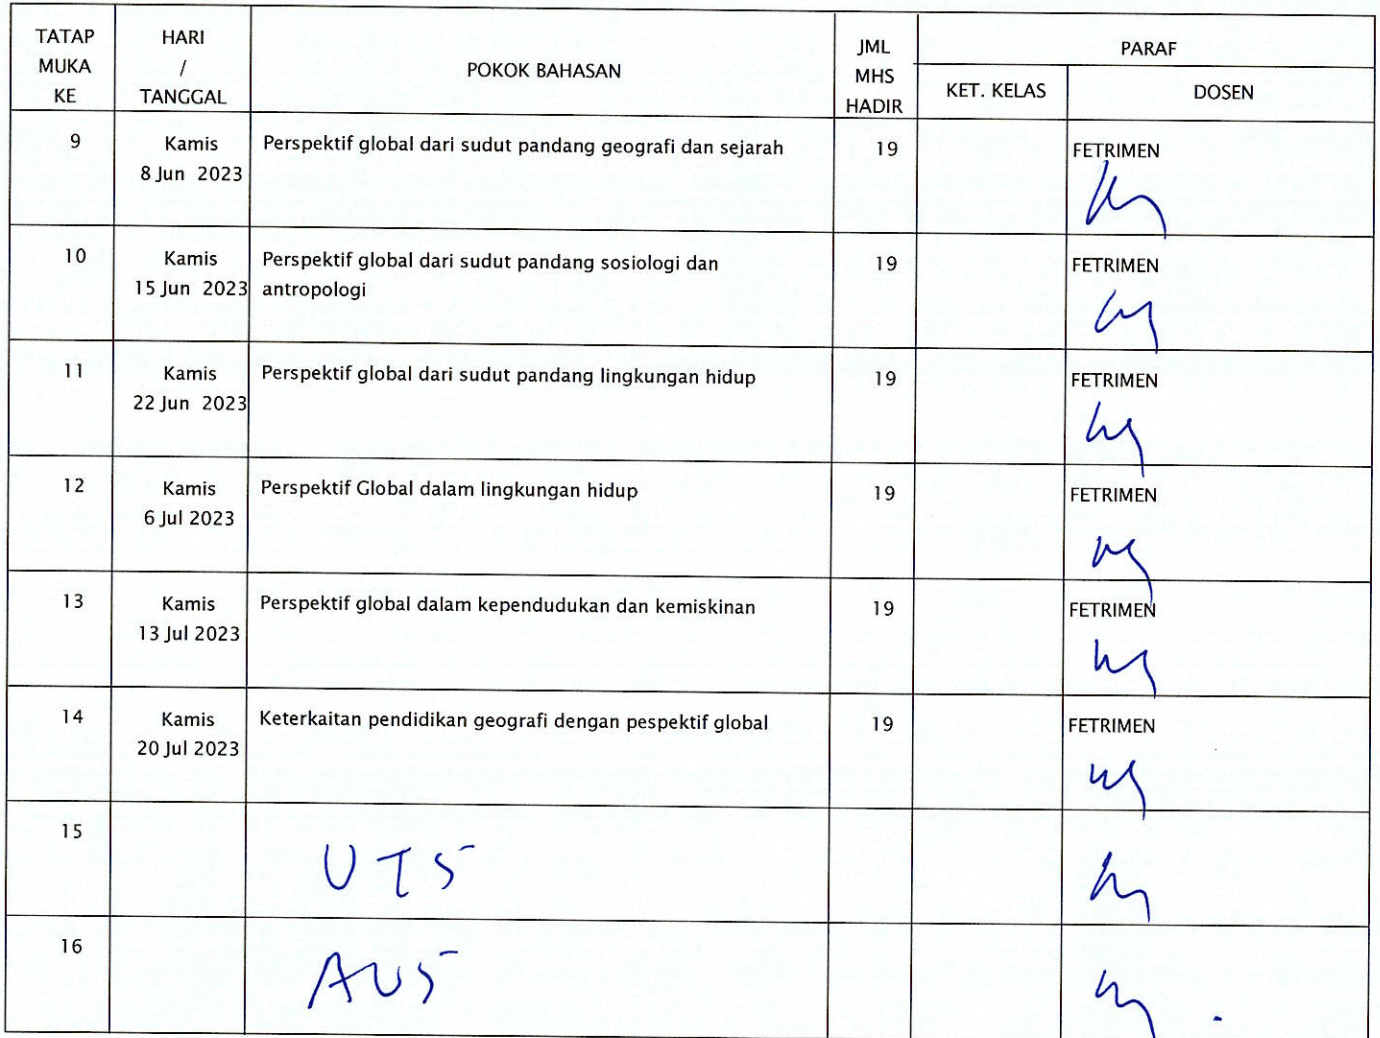 TATAP MUKA KE
HARI / TANGGAL
POKOK BAHASAN
JML MHS HADIR
PARAF
KET. KELAS
DOSEN
9
Kamis
8 Jun 2023
Perspektif global dari sudut pandang geografi dan sejarah
19
FETRIMEN
10
Kamis
15 Jun 2023
Perspektif global dari sudut pandang sosiologi dan
antropologi
19
FETRIMEN
11
Kamis
22 Jun 2023
Perspektif global dari sudut pandang lingkungan hidup
19
FETRIMEN
12
Kamis
6 Jul 2023
Perspektif Global dalam lingkungan hidup
19
FETRIMEN
13
Kamis
13 Jul 2023
Perspektif global dalam kependudukan dan kemiskinan
19
FETRIMEN
14
Kamis
20 Jul 2023
Keterkaitan pendidikan geografi dengan pespektif global
19
FETRIMEN
15
UTS
16
AUS